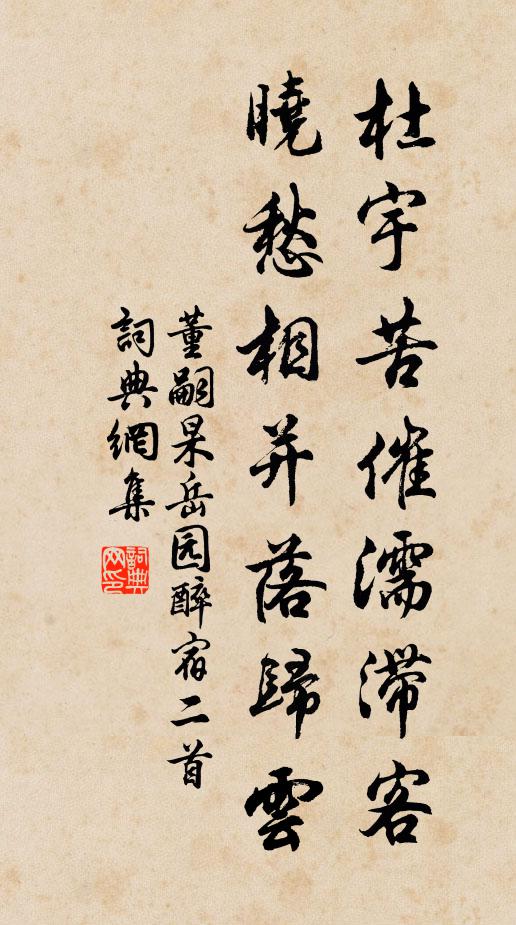 杜宇苦催濡滯客
曉愁相并落歸雲
董嗣杲岳园醉宿二首
詞典網集
詞典
网印